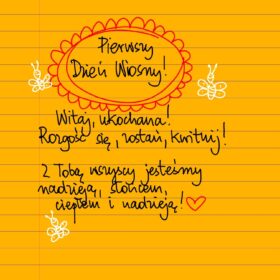 Pierwszy
Dzień Wiosny!
Witaj, ukochana!
Rozgość się, zostań, kwitnij!
Z Tobą wszyscy jesteśmy
nadzieją, słońcem,
ciepłem i nadzieją!